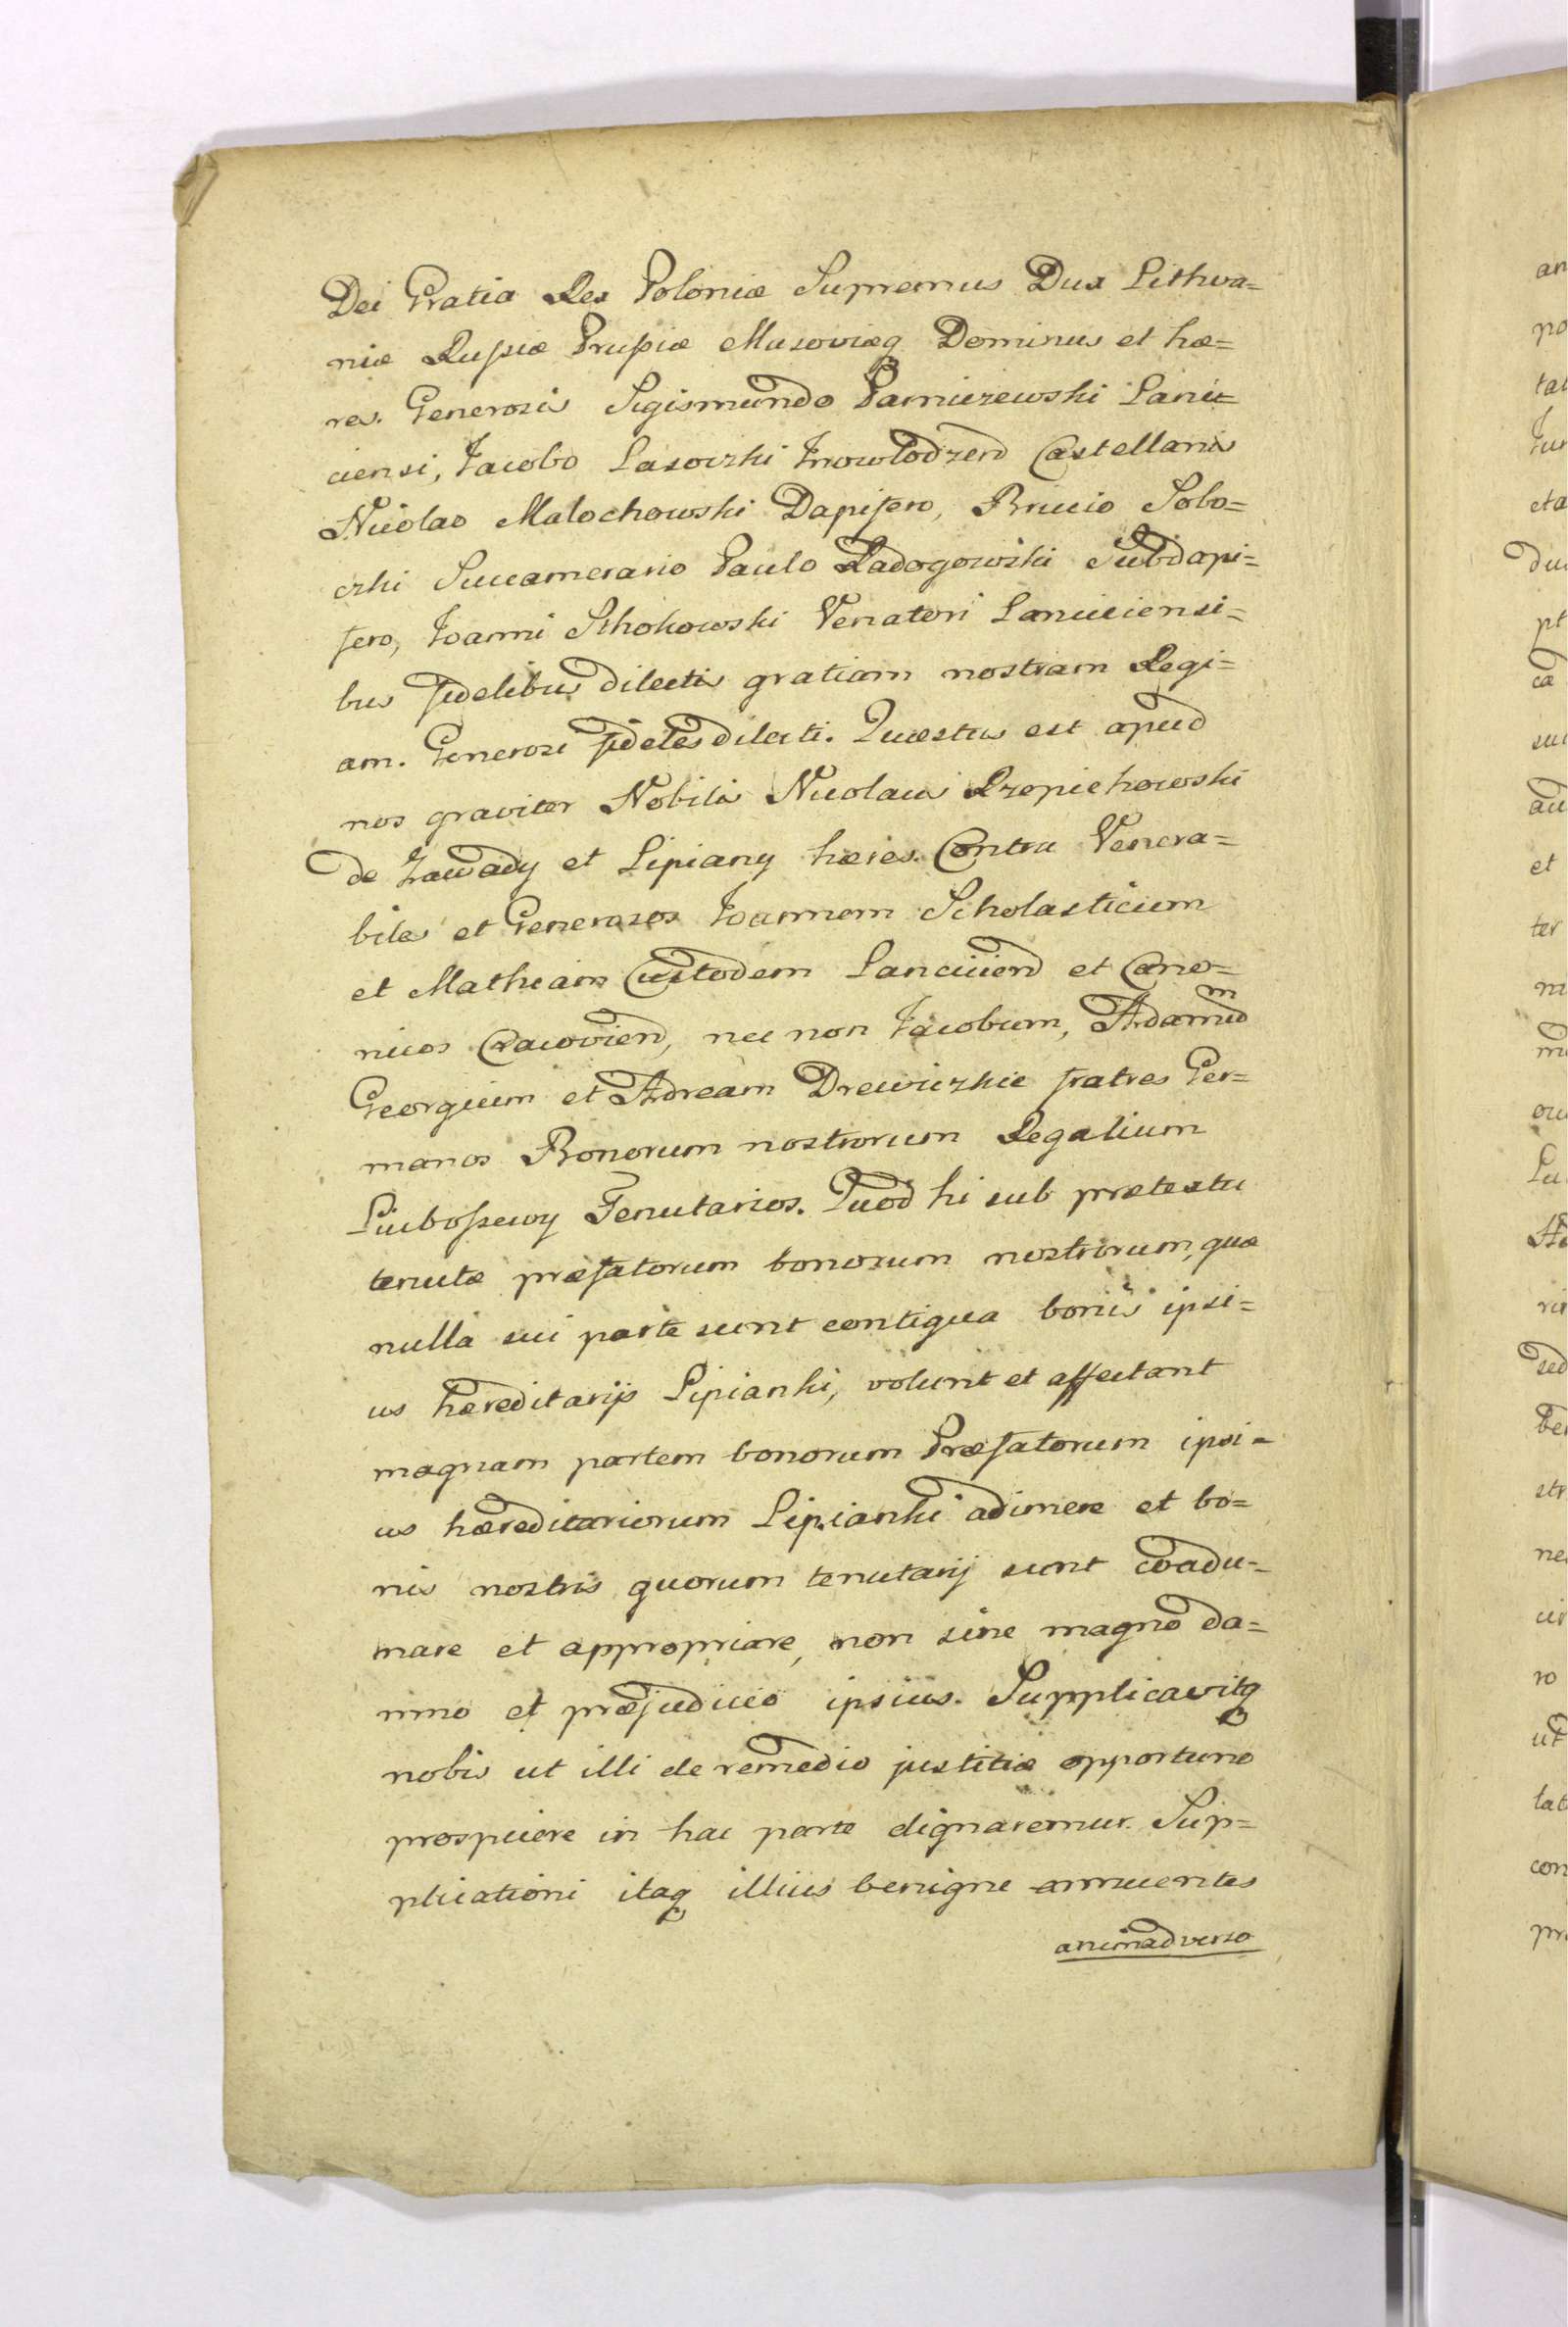 Dei Gratia Rex Poloniæ Supremus Dux Lithva=
niæ Rußiæ Prußiæ Masoviæq Dominus et hæ=
res. Generosis Sigismundo Parniczewski Lanci=
ciensi, Jacobo Lasoczki Inowlodzend Castellanis
Nicolao Malochowski Dapifero, Briccio Sobo=
czki Succamerario Paulo Radogowski Subdapi=
fero, Joanni Schokowski Venatori Lanciciensi=
bus fidelibus dilectis gratiam nostram Regi=
am. Generosi fideles dilecti. Quæstus est apud
nos graviter Nobilis Nicolaus Rzepichowski
de Zawady et Lipiany hæres. Contra Venera=
biles et Generosos Joannem Scholasticum
et Mathiam Custodem Lanciciend et Cano=
nicos Cracoviend, nec non Jacobum, Adamud
Georgium et Adream Drewiczkie fratres Ger=
manos Bonorum nostrorum Regalium
Liuboßewy Tenutarios. Quod hi sub prætextu
tenutæ præfatorum bonorum nostrorum, quæ
nulla sui parte sunt contigua bonis ipsi=
us hæreditarijs Lipianki, volunt et affectant
magnam partem bonorum Præfatorum ipsi=
us hæreditariorum Lipianki adimere et bo=
nis nostris quorum tenutarij sunt coadu=
nare et appropriare, non sine magno da=
mno et præjudicio ipsius. Supplicavitq
nobis ut illi de remedio justitiæ opportuno
prospicere in hac parte dignaremur. Sup=
plicationi itaq illius benigne annuentes
animadverso